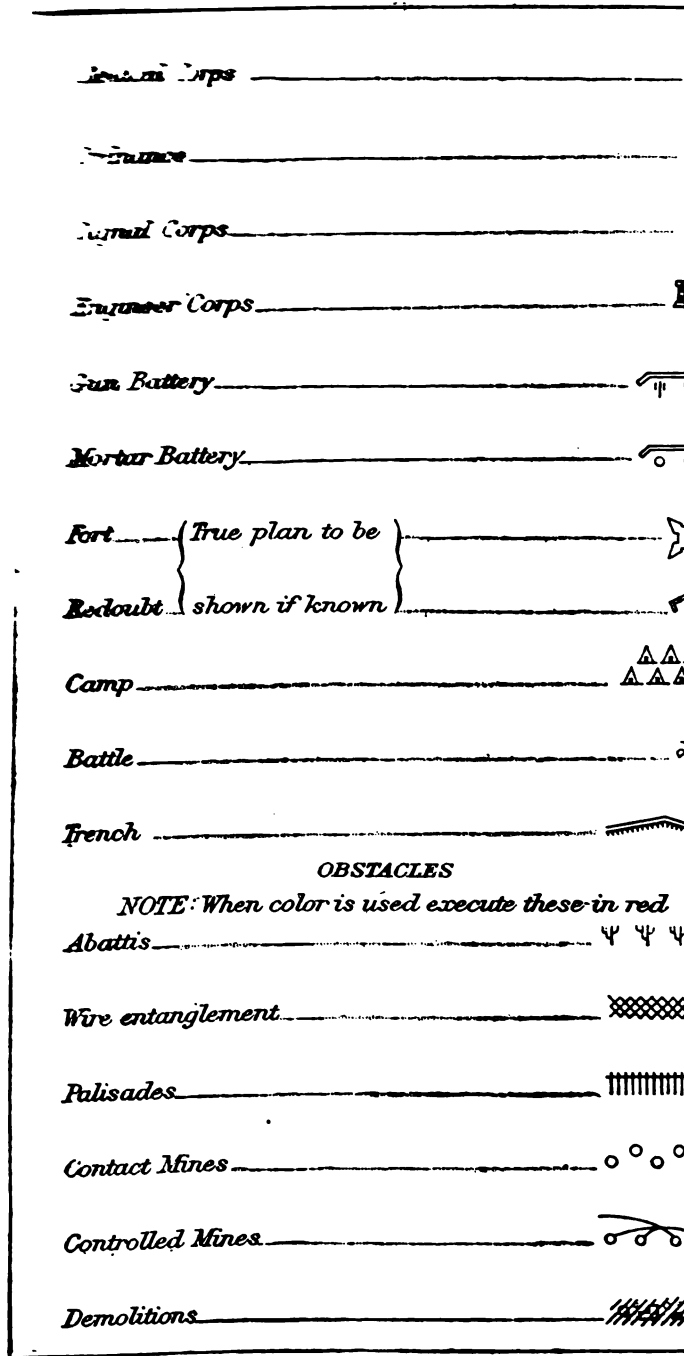 Corps
Corps
Engineer Corps
Gun Battery
Mortar Battery
Fort { True plan to be }
Redoubt { shown if known }
Camp
Battle
Trench
OBSTACLES
NOTE: When color is used execute these in red
Abattis
Wire entanglement
Palisades
Contact Mines
Controlled Mines
Demolitions